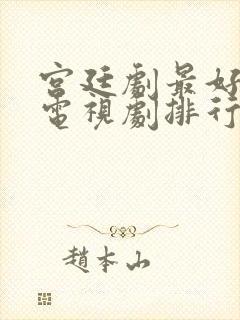 宮廷劇最好
電視劇排行
趙本山